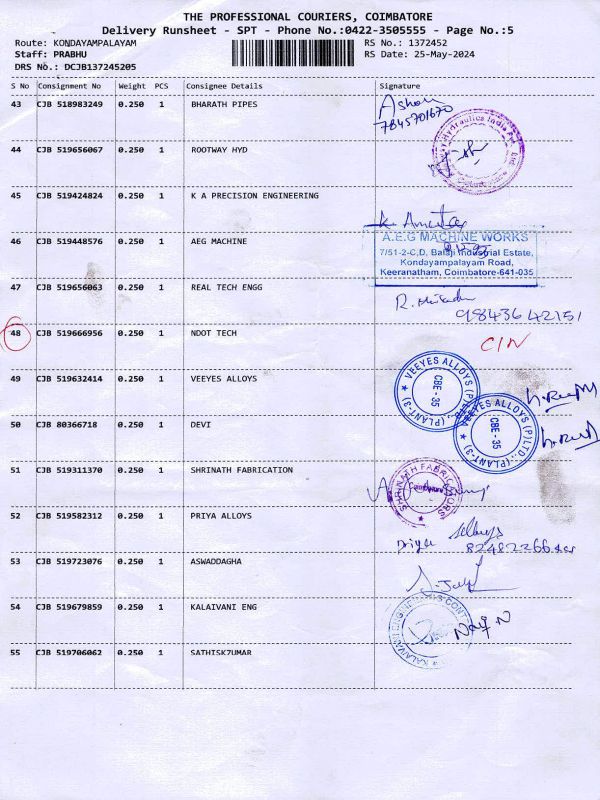 THE PROFESSIONAL COURIERS, COIMBATORE
Delivery Runsheet - SPT - Phone No.:0422-3505555 - Page No.:5
Route: KONDAYAMPALAYAM RS No.: 1372452
Staff: PRABHU RS Date: 25-May-2024
DRS No.: DCJB137245205
S No Consignment No Weight PCS Consignee Details Signature
43 CJB 518983249 0.250 1 BHARATH PIPES
7845701670
44 CJB 519656067 0.250 1 ROOTWAY HYD
Hydraulics India Pvt. Ltd.
45 CJB 519424824 0.250 1 K A PRECISION ENGINEERING
46 CJB 519448576 0.250 1 AEG MACHINE
A.E.G MACHINE WORKS
7/51-2-C,D, Balaji Industrial Estate,
Kondayampalayam Road,
Keeranatham, Coimbatore-641-035
47 CJB 519656063 0.250 1 REAL TECH ENGG
9843642151
48 CJB 519666956 0.250 1 NDOT TECH
C/N
49 CJB 519632414 0.250 1 VEEYES ALLOYS
VEEYES ALLOYS (P) LTD., (PLANT-3) CBE - 35
VEEYES ALLOYS (P) LTD., (PLANT-3) CBE - 35
50 CJB 80366718 0.250 1 DEVI
51 CJB 519311370 0.250 1 SHRINATH FABRICATION
SHRINATH FABRICATORS
52 CJB 519582312 0.250 1 PRIYA ALLOYS
53 CJB 519723076 0.250 1 ASWADDAGHA
54 CJB 519679859 0.250 1 KALAIVANI ENG
KALAIVANI ENGINEERING
55 CJB 519706062 0.250 1 SATHISK7UMAR